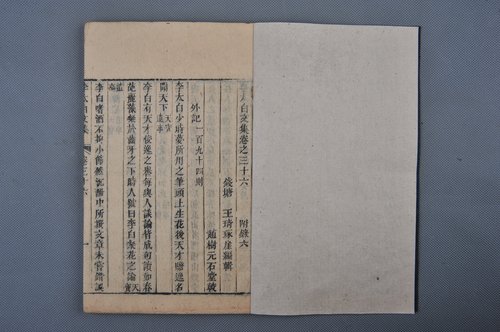 李太白文集卷之三十六 附錄六
錢塘 王琦琢崖編輯
趙樹元石堂較
外記一百九十四則
李太白少時夢所用之筆頭上生花後天才贍逸名
聞天下 天寶遺事
李白有天才俊逸之譽每與人談論皆成句讀如春
葩麗藻粲於齒牙之下時人號曰李白粲花之論 天寶
遺事
李白嗜酒不拘小節然沉酣中所撰文章未嘗錯誤
李太白文集 卷三十六 一